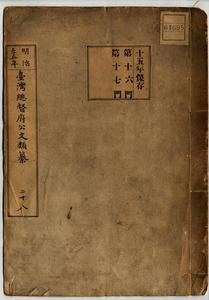 十五年保存
第十六門
第十七門
明治
臺灣總督府公文類纂
二十八